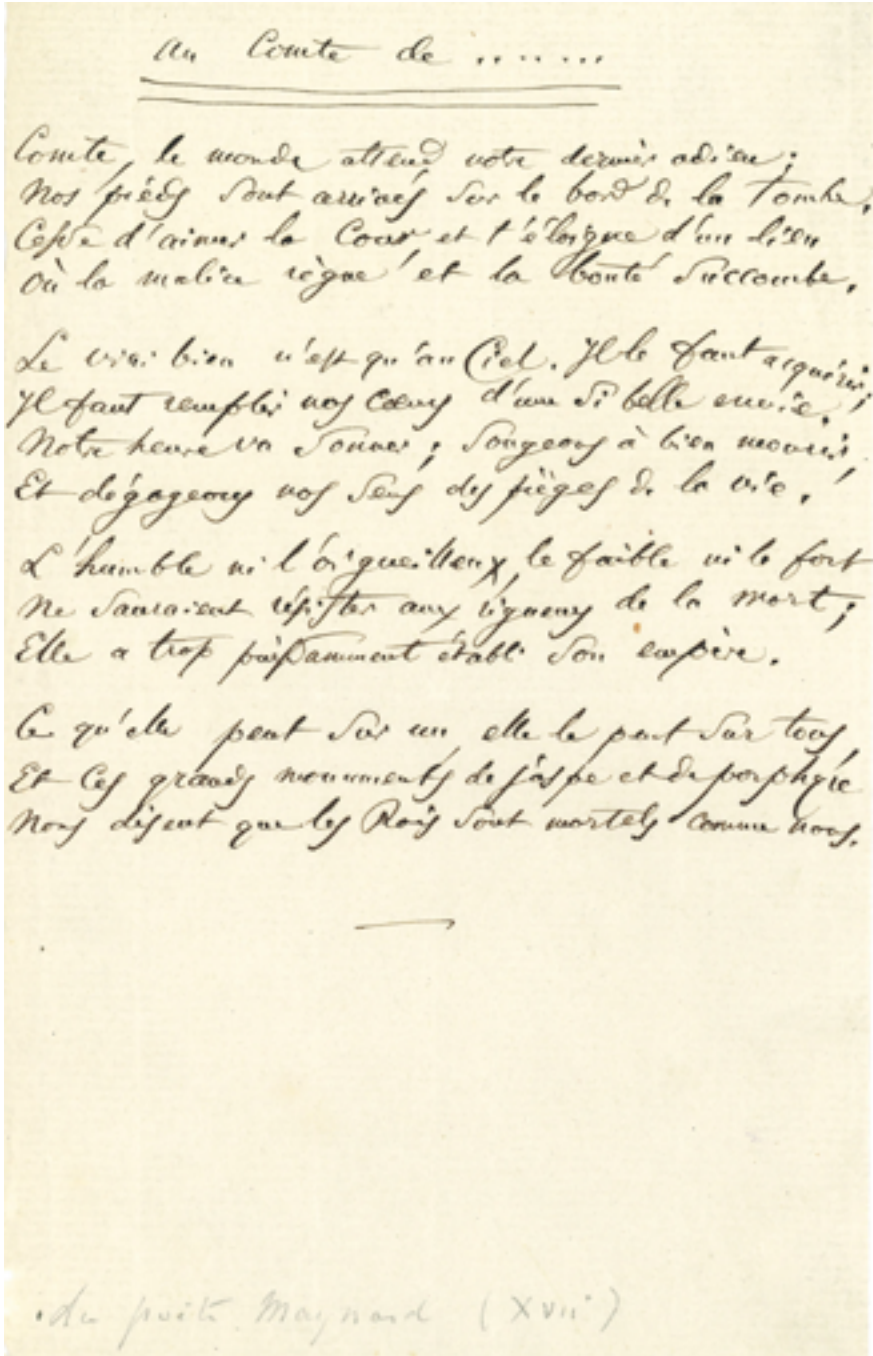 Au Comte de .......
Comte, le monde attend notre dernier adieu ;
Nos pieds sont arrivés sur le bord de la tombe.
Cesse d'aimer la Cour et t'éloigne d'un lieu
Où la malice règne et la bonté succombe.
Le vrai bien n'est qu'au Ciel. Il le faut acquérir ;
Il faut remplir nos cœurs d'une si belle envie.
Notre heure va sonner ; songeons à bien mourir,
Et dégageons nos sens des pièges de la vie.
L'humble ni l'orgueilleux, le faible ni le fort
Ne sauraient résister aux rigueurs de la mort ;
Elle a trop puissamment établi son empire.
Ce qu'elle peut sur un, elle le peut sur tous,
Et ces grands monuments de jaspe et de porphyre
Nous disent que les Rois sont mortels comme nous.
du poète Maynard (XVII)